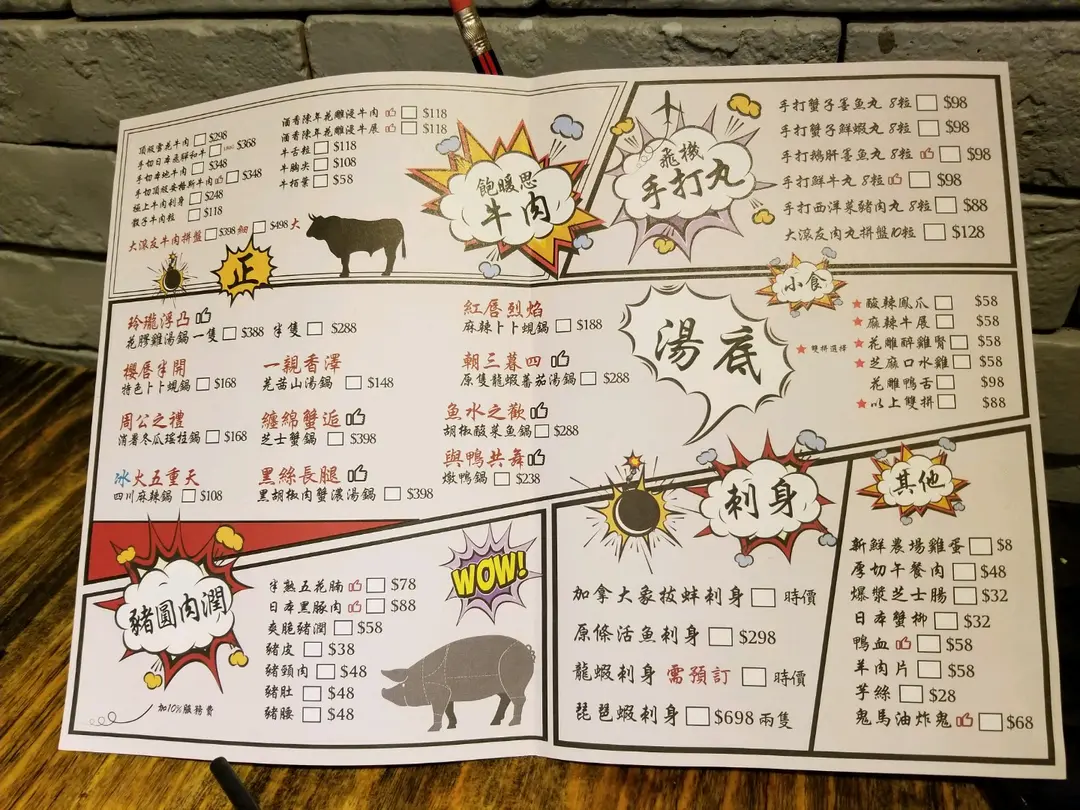 頂級雪花牛肉 $298
手切日本飛驒和牛 $368
手切本地牛肉 $348
手切頂級安格斯牛肉 $348
極上牛肉刺身 $248
骰子牛肉粒 $118
大滾友牛肉拼盤 $398 細 $498 大
酒香陳年花雕浸牛肉 $118
酒香陳年花雕浸牛展 $118
牛舌粒 $118
牛胸尖 $108
牛栢葉 $58
正
飽暖思
牛肉
飛機
手打丸
手打蟹子墨魚丸 8粒 $98
手打蟹子鮮蝦丸 8粒 $98
手打鵝肝墨魚丸 8粒 $98
手打鮮牛丸 8粒 $98
手打西洋菜豬肉丸 8粒 $88
大滾友肉丸拼盤10粒 $128
玲瓏浮凸
花膠雞湯鍋 一隻 $388 半隻 $288
紅唇烈焰
麻辣卜卜蜆鍋 $188
櫻唇半開
特色卜卜蜆鍋 $168
一親香澤
芫茜山湯鍋 $148
朝三暮四
原隻龍蝦番茄湯鍋 $288
周公之禮
消暑冬瓜瑤柱鍋 $168
纏綿蟹逅
芝士蟹鍋 $398
魚水之歡
胡椒酸菜魚鍋 $288
冰火五重天
四川麻辣鍋 $108
黑絲長腿
黑胡椒肉蟹濃湯鍋 $398
與鴨共舞
燉鴨鍋 $238
湯底
小食
★雙拼選擇
★酸辣鳳爪 $58
★麻辣牛展 $58
★花雕醉雞腎 $58
★芝麻口水雞 $58
花雕鴨舌 $98
★以上雙拼 $88
豬圓肉潤
半熟五花腩 $78
日本黑豚肉 $88
爽脆豬潤 $58
豬皮 $38
豬頸肉 $48
豬肚 $48
豬腰 $48
加10%服務費
WOW!
刺身
加拿大象拔蚌刺身 時價
原條活魚刺身 $298
龍蝦刺身 需預訂 時價
琵琶蝦刺身 $698 兩隻
其他
新鮮農場雞蛋 $8
厚切午餐肉 $48
爆漿芝士腸 $32
日本蟹柳 $32
鴨血 $58
羊肉片 $58
芋絲 $28
鬼馬油炸鬼 $68